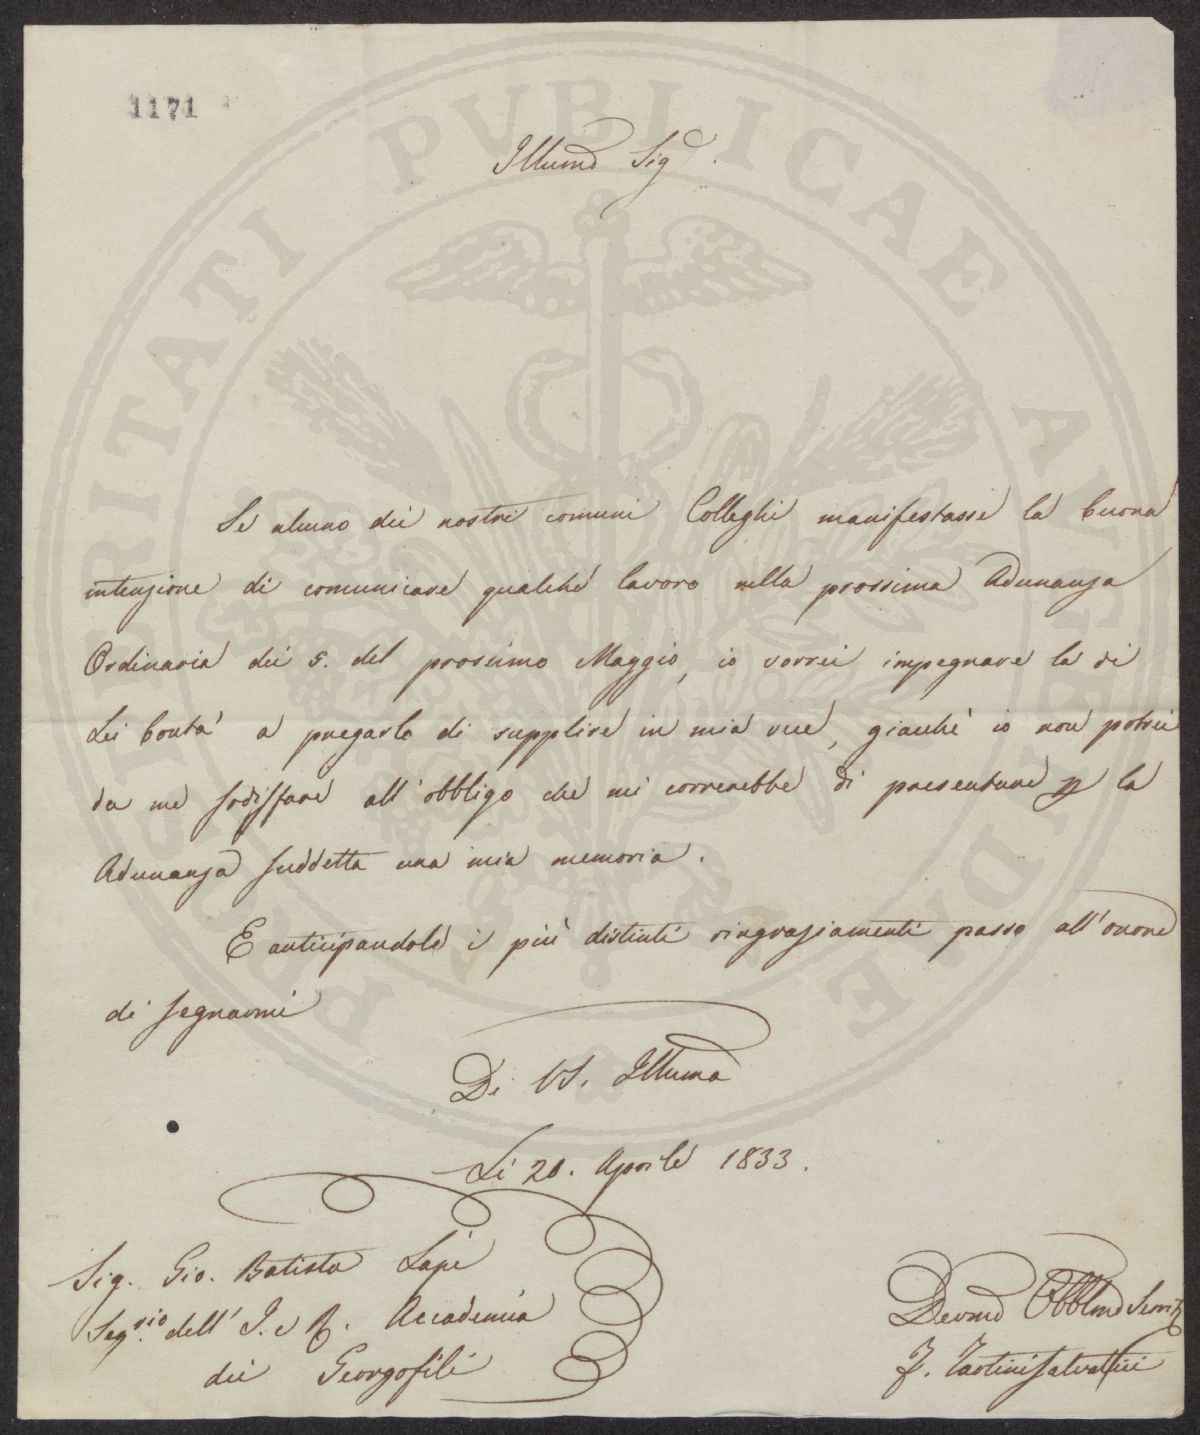 1171
Illumo Sigr.
Se alcuno dei nostri comuni Colleghi manifestasse la buona
intenzione di comunicare qualche lavoro nella prossima Adunanza
Ordinaria dei 5. del prossimo Maggio, io vorrei impegnare la di
Lei bontà a pregarlo di supplire in mia vece, giacchè io non potrei
da me sodisfare all'obbligo che mi correrebbe di presentare p la
Adunanza suddetta una mia memoria.
E anticipandole i più distinti ringraziamenti passo all'onore
di segnarmi
Di VS. Illuma
Li 20. Aprile 1833.
Sig. Gio. Batista Lapi
Segrio dell' I. e R. Accademia
dei Georgofili
Devmo Obblmo Servit
F. Tartini Salvatici
PROSPERITATI PVBLICAE AVGENDAE